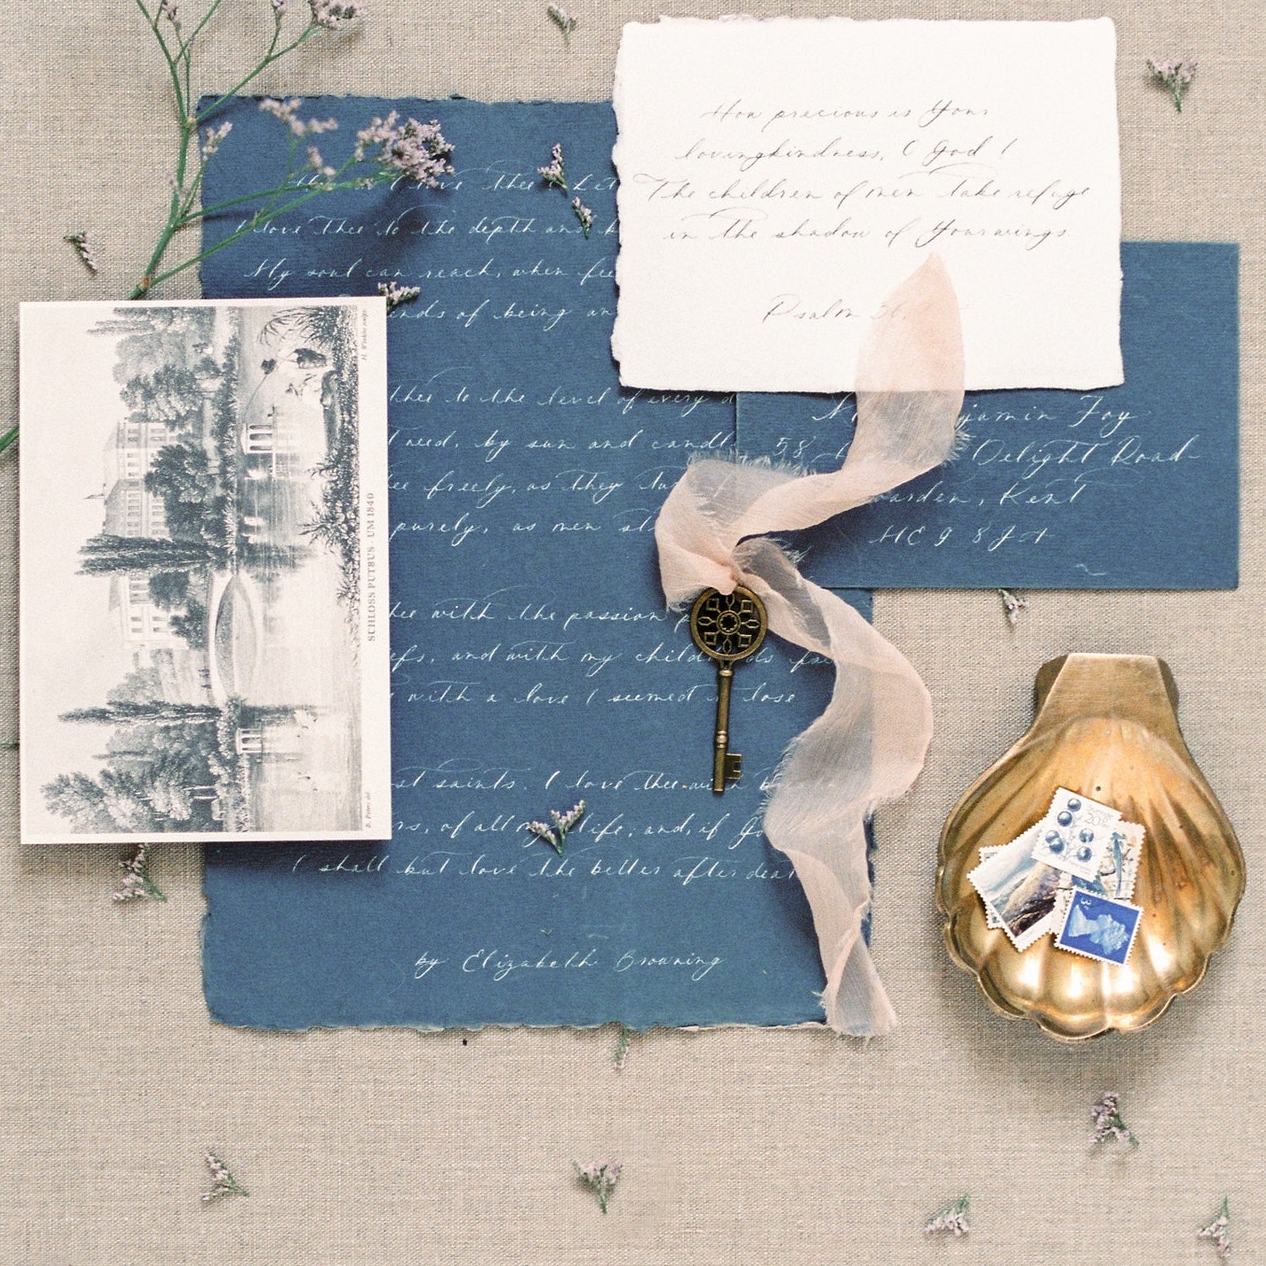 How precious is Your
lovingkindness, O God !
The children of men take refuge
in the shadow of Your wings
Psalm 36
love thee
I love thee to the depth and
My soul can reach, when
of being an
thee to the level of every d
need, by sun and candl
freely, as they
purely, as men st
with the passion
and with my child
with a love I seemed lose
saints. I love thee with
of all my life, and, if Go
I shall but love the better after deat
by Elizabeth Browning
jamin Foy
58 Delight Road
arden, Kent
HE9 8JA
SCHLOSS PUTBUS · UM 1840